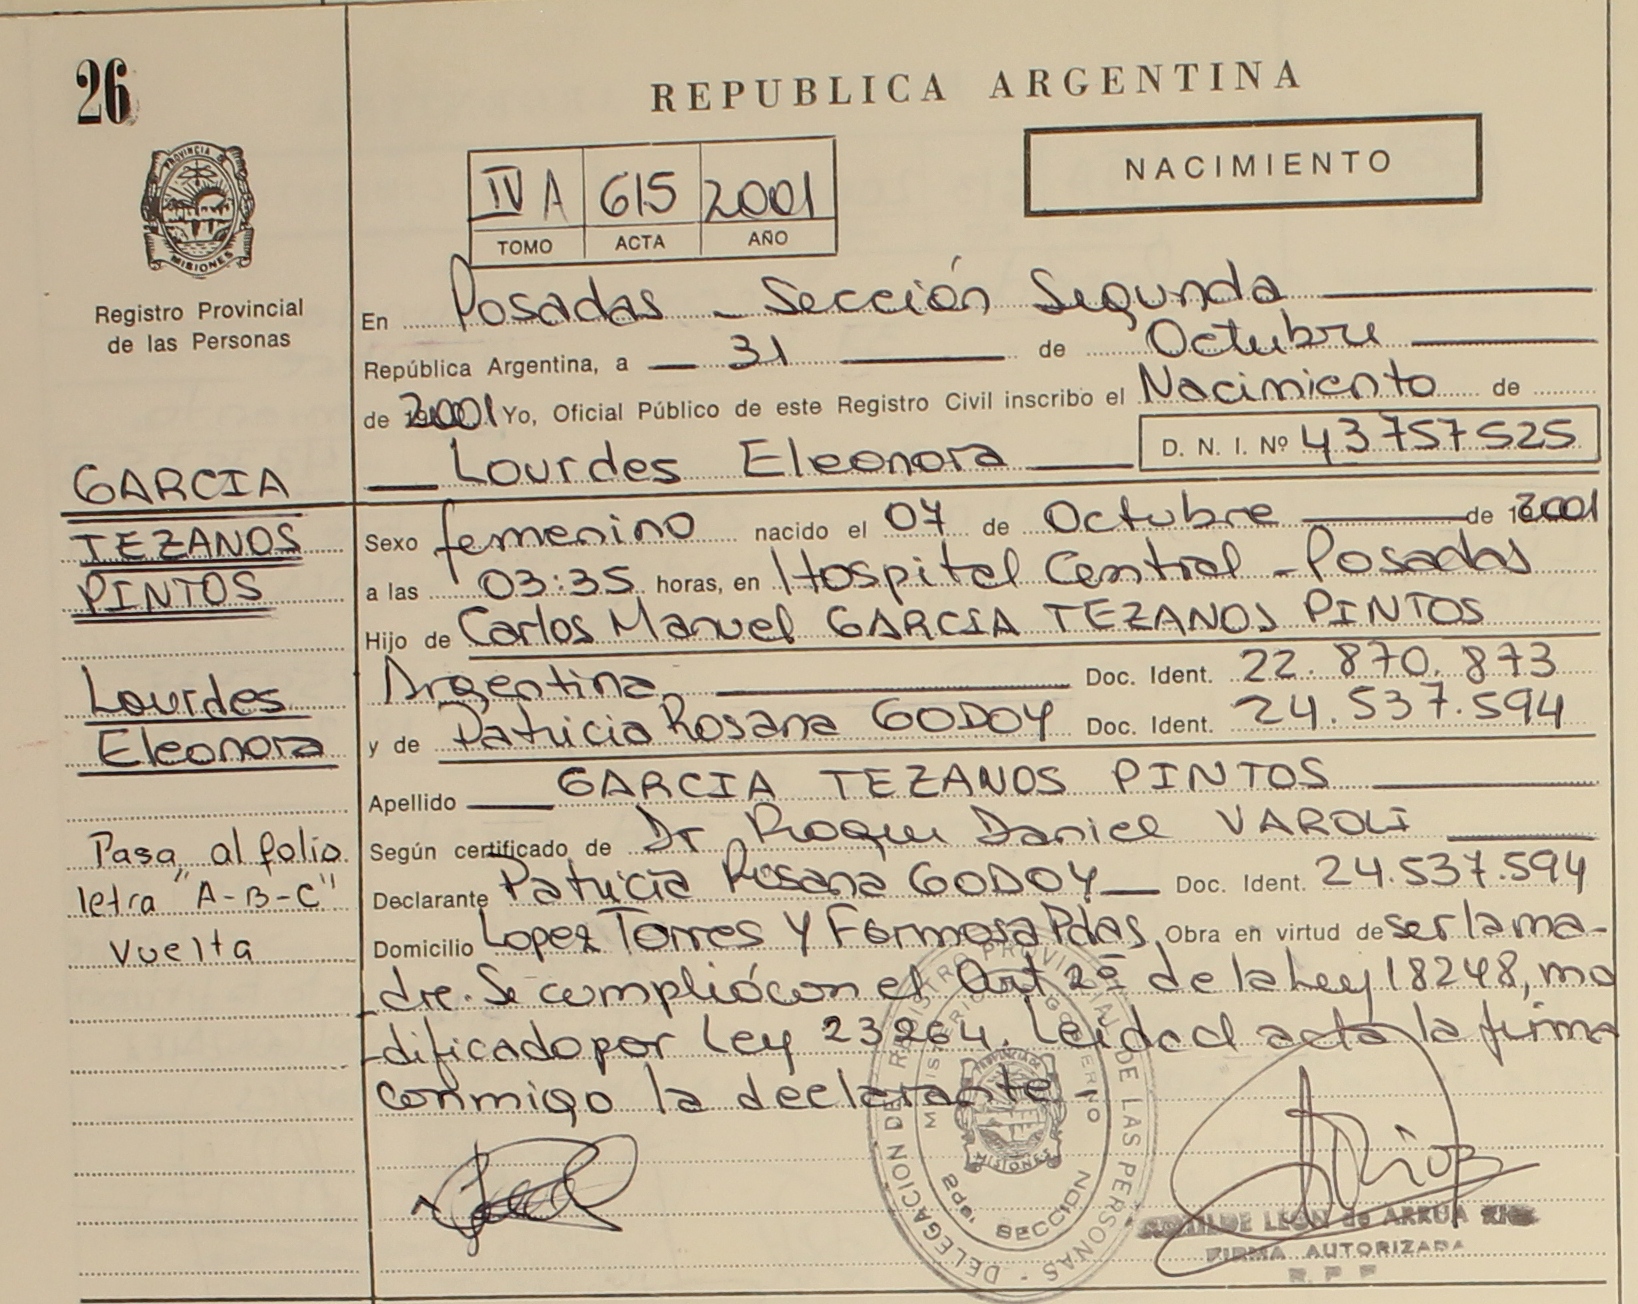 26
REPUBLICA ARGENTINA
NACIMIENTO
IV A 615 2001
TOMO ACTA AÑO
PROVINCIA DE
MISIONES
Registro Provincial
de las Personas
En Posadas - Sección Segunda
República Argentina, a 31 de Octubre
de 2001 Yo, Oficial Público de este Registro Civil inscribo el Nacimiento de
Lourdes Eleonora D. N. I. Nº 43.757.525
GARCIA
TEZANOS
PINTOS
Lourdes
Eleonora
Pasa al folio
letra "A-B-C"
Vuelta
Sexo femenino nacido el 07 de Octubre de 2001
a las 03:35 horas, en Hospital Central - Posadas
Hijo de Carlos Manuel GARCIA TEZANOS PINTOS
Argentina, Doc. Ident. 22.870.873
y de Patricia Rosana GODOY Doc. Ident. 24.537.594
Apellido GARCIA TEZANOS PINTOS
Según certificado de Dr Roque Daniel VAROLI
Declarante Patricia Rosana GODOY Doc. Ident. 24.537.594
Domicilio Lopez Torres y Formosa Pdas, Obra en virtud de ser la ma-
dre. Se cumplió con el Art 2º de la Ley 18248, mo
-dificado por Ley 23264. Leida el acta la firma
conmigo la declarante-
DELEGACION DEL REGISTRO PROVINCIAL DE LAS PERSONAS
MINISTERIO GOBIERNO
MISIONES
2da. SECCION
LEON de ARRUA
FIRMA AUTORIZADA
R. P. P.